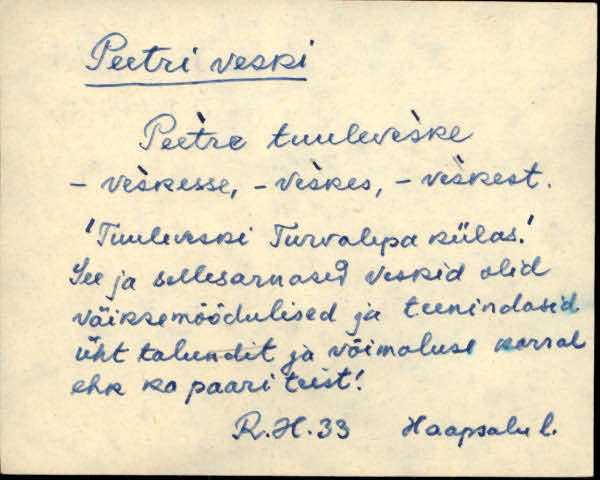 Peetri veski
Peètre tuulevèske
- vèskesse, - vèskes, - vèskest.
'Tuuleveski Turvalepa külas.'
See ja sellesarnased veskid olid
väiksemõõdulised ja teenindasid
üht talundit ja võimaluse korral
ehk ka paari teist!
R.H.33 Haapsalu l.